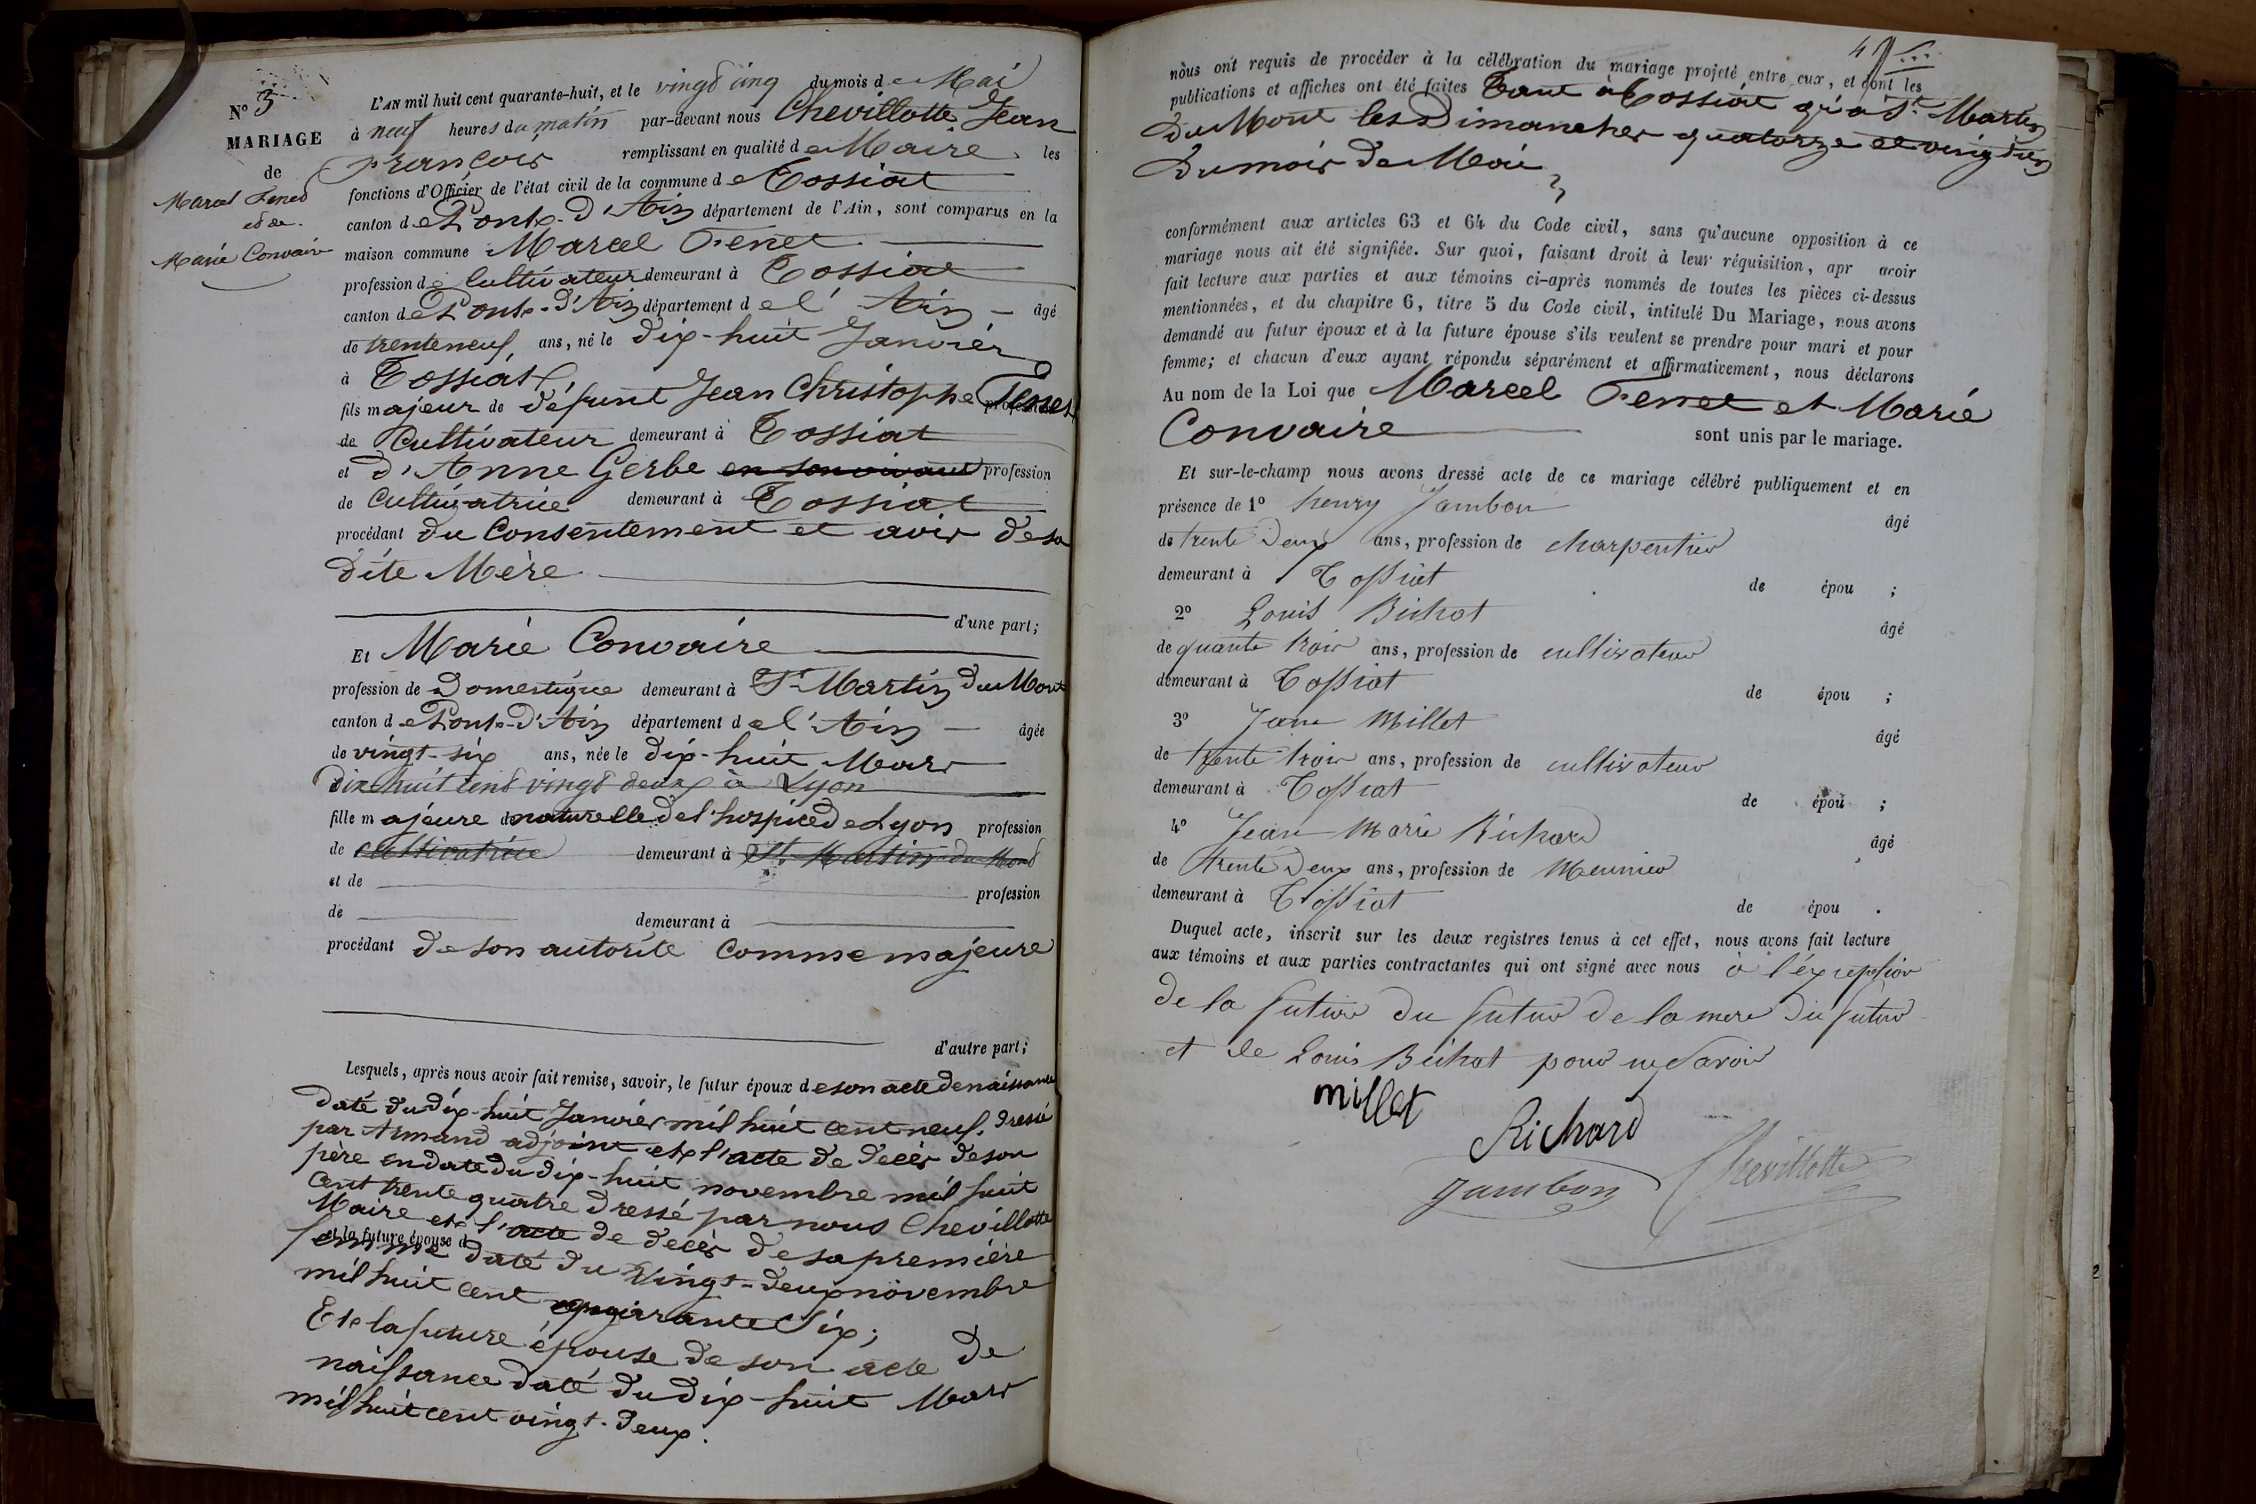 N° 3
MARIAGE
de
Marcel Fenet
et de
Marie Convaire
L'AN mil huit cent quarante-huit, et le vingt cinq du mois de Mai
à neuf heures du matin par-devant nous Chevillotte Jean
François remplissant en qualité de Maire les
fonctions d'Officier de l'état civil de la commune de Tossiat
canton de Pont-d'Ain département de l'Ain, sont comparus en la
maison commune Marcel Fenet
profession de Cultivateur demeurant à Tossiat
canton de Pont-d'Ain département de l'Ain âgé
de trente neuf ans, né le dix-huit Janvier
à Tossiat
fils majeur de défunt Jean Christophe Fenet profession
de Cultivateur demeurant à Tossiat
et d'Anne Gerbe en son vivant profession
de Cultivatrice demeurant à Tossiat
procédant du Consentement et avis de sa
dite Mère
d'une part;
Et Marie Convaire
profession de Domestique demeurant à St Martin du Mont
canton de Pont-d'Ain département de l'Ain âgée
de vingt-six ans, née le dix-huit Mars
dix huit cent vingt deux à Lyon
fille majeure naturelle de l'hospice de Lyon profession
de cultivatrice demeurant à St Martin du Mont
et de profession
de demeurant à
procédant de son autorité comme majeure
d'autre part;
Lesquels, après nous avoir fait remise, savoir, le futur époux de son acte de naissance
daté du dix-huit Janvier mil huit cent neuf, dressé
par Armand adjoint et l'acte de décès de son
père en date du dix-huit novembre mil huit
cent trente quatre dressé par nous Chevillotte
Maire et l'acte de décès de sa première
et la future épouse d
femme daté du vingt-deux novembre
mil huit cent quarante six;
Et la future épouse de son acte de
naissance daté du dix-huit Mars
mil huit cent vingt-deux.
nous ont requis de procéder à la célébration du mariage projeté entre eux, et dont les
publications et affiches ont été faites tant à Tossiat qu'à St Martin
du Mont les Dimanches quatorze et vingt un
du mois de Mai
conformément aux articles 63 et 64 du Code civil, sans qu'aucune opposition à ce
mariage nous ait été signifiée. Sur quoi, faisant droit à leur réquisition, apr avoir
fait lecture aux parties et aux témoins ci-après nommés de toutes les pièces ci-dessus
mentionnées, et du chapitre 6, titre 5 du Code civil, intitulé Du Mariage, nous avons
demandé au futur époux et à la future épouse s'ils veulent se prendre pour mari et pour
femme; et chacun d'eux ayant répondu séparément et affirmativement, nous déclarons
Au nom de la Loi que Marcel Fenet et Marie
Convaire sont unis par le mariage.
Et sur-le-champ nous avons dressé acte de ce mariage célébré publiquement et en
présence de 1° henry Jambon âgé
de trente deux ans, profession de charpentier
demeurant à Tossiat de épou ;
2° Louis Bichat âgé
de quante trois ans, profession de cultivateur
demeurant à Tossiat de épou ;
3° Jean Millet âgé
de trente trois ans, profession de cultivateur
demeurant à Tossiat de épou ;
4° Jean Marie Richard âgé
de trente deux ans, profession de Meunier
demeurant à Tossiat de épou .
Duquel acte, inscrit sur les deux registres tenus à cet effet, nous avons fait lecture
aux témoins et aux parties contractantes qui ont signé avec nous à l'éxception
de la future du futur de la mere du futur
et de Louis Bichat pour ne savoir
millet
Richard
Jambon Chevillotte